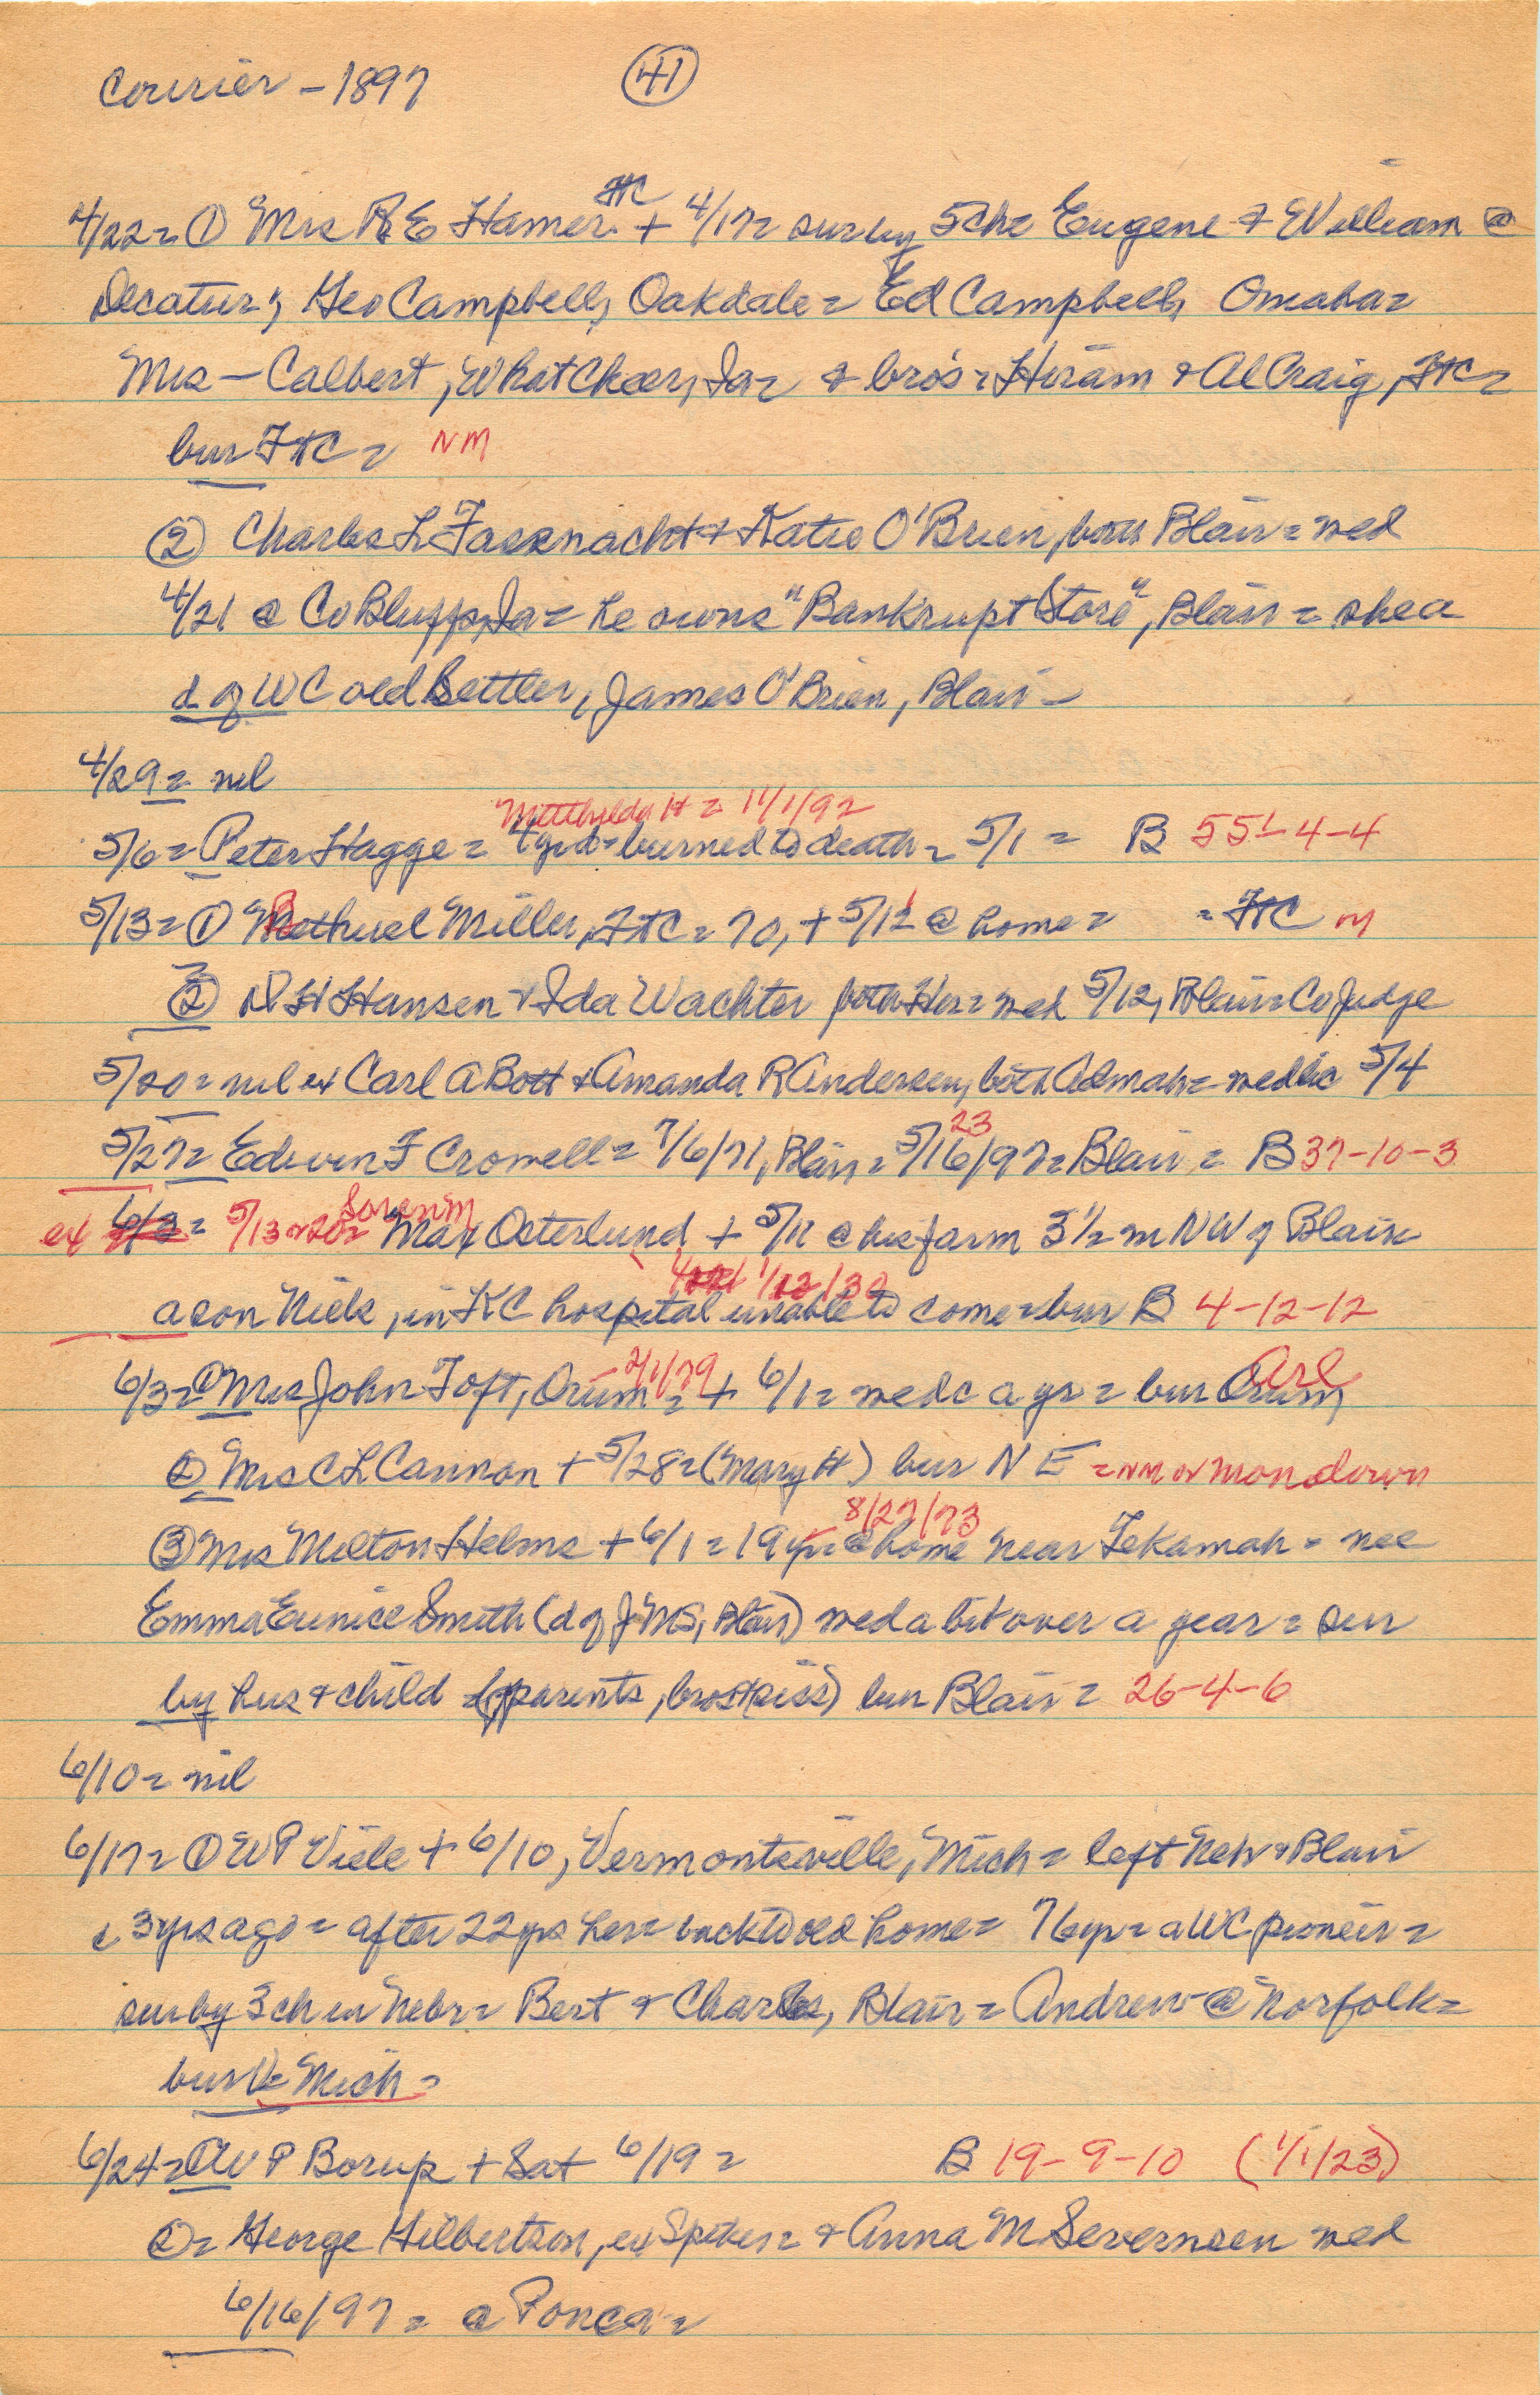 Courier - 1897 41
FtC
4/22= ① Mrs R E Hamer + 4/17= sur by 5 ch= Eugene & William @
Decatur; Geo Campbell, Oakdale= Ed Campbell, Omaha=
Mrs — Calbert, What Cheer, Ia= & bros= Hiram & Al Craig, FtC=
bur FtC= NM
② Charles L Fassnacht & Katie O'Brien, both Blair= wed
4/21 @ Co Bluffs, Ia= he owns "Bankrupt Store", Blair= she a
d of WC old Settler, James O'Brien, Blair -
4/29= nil
H= 11/1/92
5/6= Peter Hagge= 4 yr d= burned to death= 5/1= B 55-4-4
5/13= ① Methuel Miller, FtC= 70, + 5/12 @ home= = FtC M
② N H Hansen & Ida Wachter both Her= wed 5/12, Blair= Co Judge
5/20= nil ex Carl A Bott & Amanda R Andersen, both Admah= wed 5/4
23
5/27= Edwin F Crowell= 7/6/71, Blair= 5/16/97= Blair= B 37-10-3
Soren M
ex 6/3= 5/13 Max Osterlund + 5/11 @ his farm 3 1/2 m NW of Blair
1/12/30
a son Niels, in KC hospital unable to come= bur B 4-12-12
2/1/79 Arl
6/3= ① Mrs John Toft, Orum= + 6/1= wed c a yr= bur Orum
② Mrs C L Cannon + 5/28= (Mary H) bur N E = NM or Mondown
8/27/73
③ Mrs Milton Helms + 6/1= 19 yr= @ home near Tekamah= nee
Emma Eunice Smith (d of J M S, Blair) wed a bit over a year= sur
by hus & child (parents, bros & siss) bur Blair= 26-4-6
6/10= nil
6/17= ① W P Viele + 6/10, Vermontsville, Mich= left Neb & Blair
c 3 yrs ago= after 22 yrs here= back to old home= 76 yr= a WC pioneer=
sur by 3 ch in Nebr= Bert & Charles, Blair= Andrew @ Norfolk=
bur V= Mich=
6/24= ① W P Borup + Sat 6/19= B 19-9-10 (1/1/23)
②= George Gilbertson, ex Spiker= & Anna M Severnsen wed
6/16/97= @ Ponca=